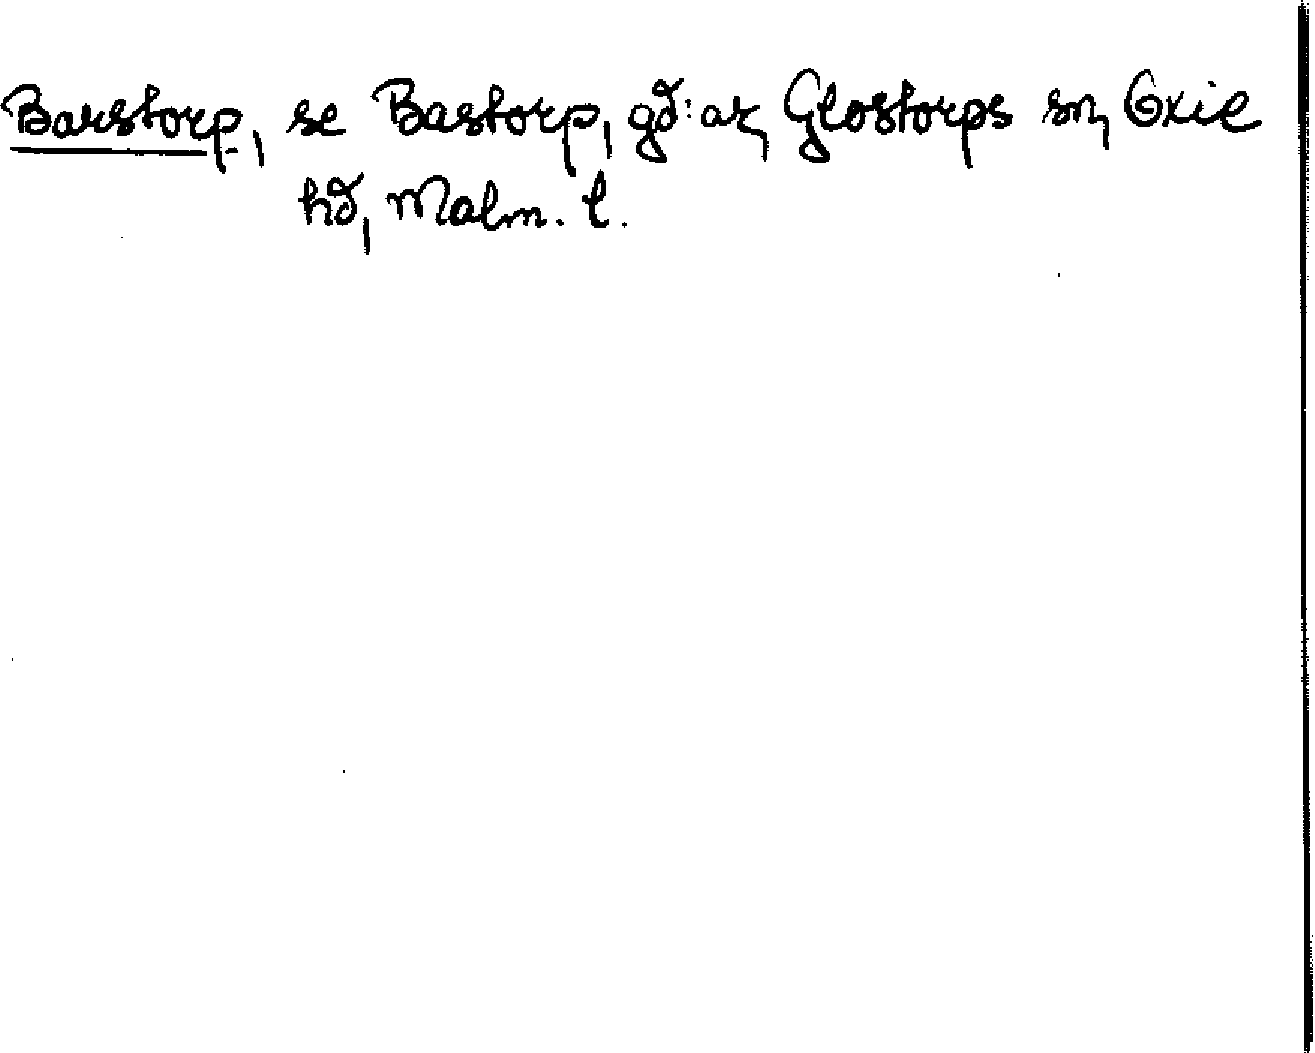 Barstorp, se Bastorp, gd:ar, Glostorps sn, Oxie
hd, Malm. l.